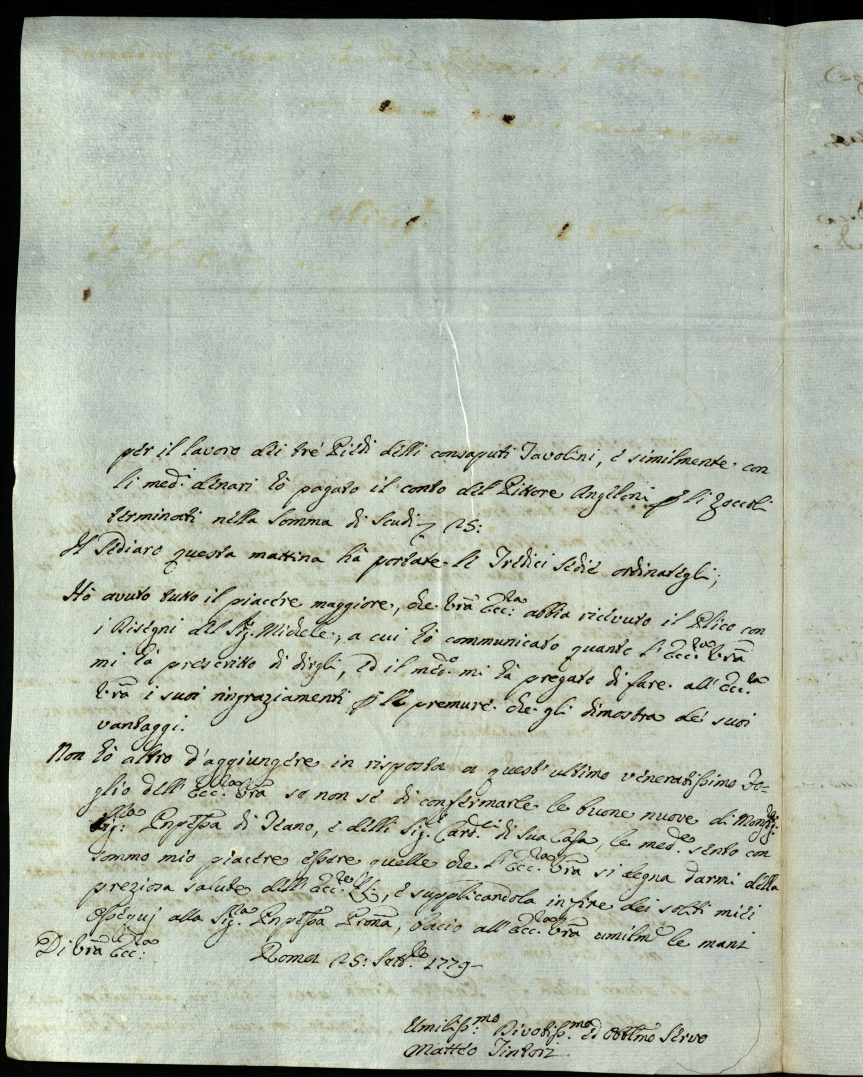 per il lavoro dei trè Piedi delli consaputi Tavolini, e similmente con
li med.i denari ho pagato il conto del Pittore Angeloni p li Zoccoli
terminati nella somma di Scudi 25:
Il Sediaro questa mattina hà portate le Tredici Sedie ordinategli;
Hò avuto tutto il piacere maggiore, che Vrã Ecc:za abbia ricevuto il Plico con
i Disegni del Sig. Michele, a cui hò communicato quanto l'Ecc:za Vrã
mi hà prescritto di dirgli, ed il med.o mi hà pregato di fare all'Ecc:za
Vrã i suoi ringraziamenti p le premure che gli dimostra dei suoi
vantaggi.
Non hò altro d'aggiungere in risposta a quest'ultimo veneratissimo Fo=
glio dell'Ecc:za Vrã se non se di confermarle le buone nuove di
Sig:ra Pnpessa di Teano, e delli Sig.i Card.li di Sua Casa, le med.e sento con
sommo mio piacere essere quelle che l'Ecc:za Vrã si degna darmi della
preziosa salute dell'Ecc:ze, e supplicandola infine dei soliti miei
ossequj alla Sig.ra Pnpessa Prona, bacio all'Ecc:za Vrã umilm.e le mani
Di Vrã Ecc:za Roma 25: Sett.e 1779
Umiliss.mo Divotiss.mo ed Obblmo Servo
Matteo Tintori